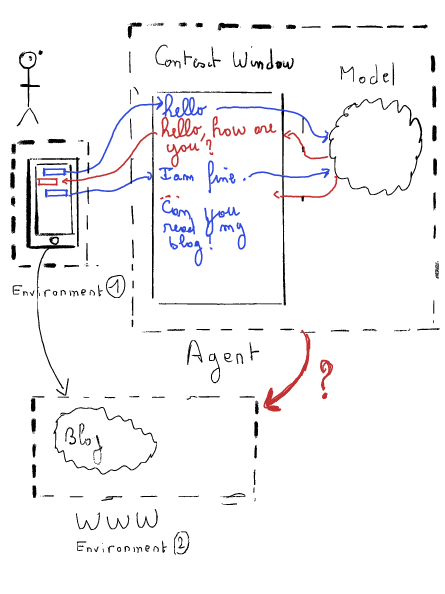 Context Window
Model
hello
hello, how are
you?
I am fine.
...
Can you
read my
blog?
Environment 1
Agent
?
Blog
WWW
Environment 2